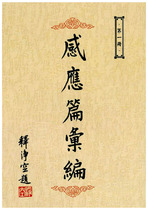 第一冊
感應篇彙編
釋淨空題